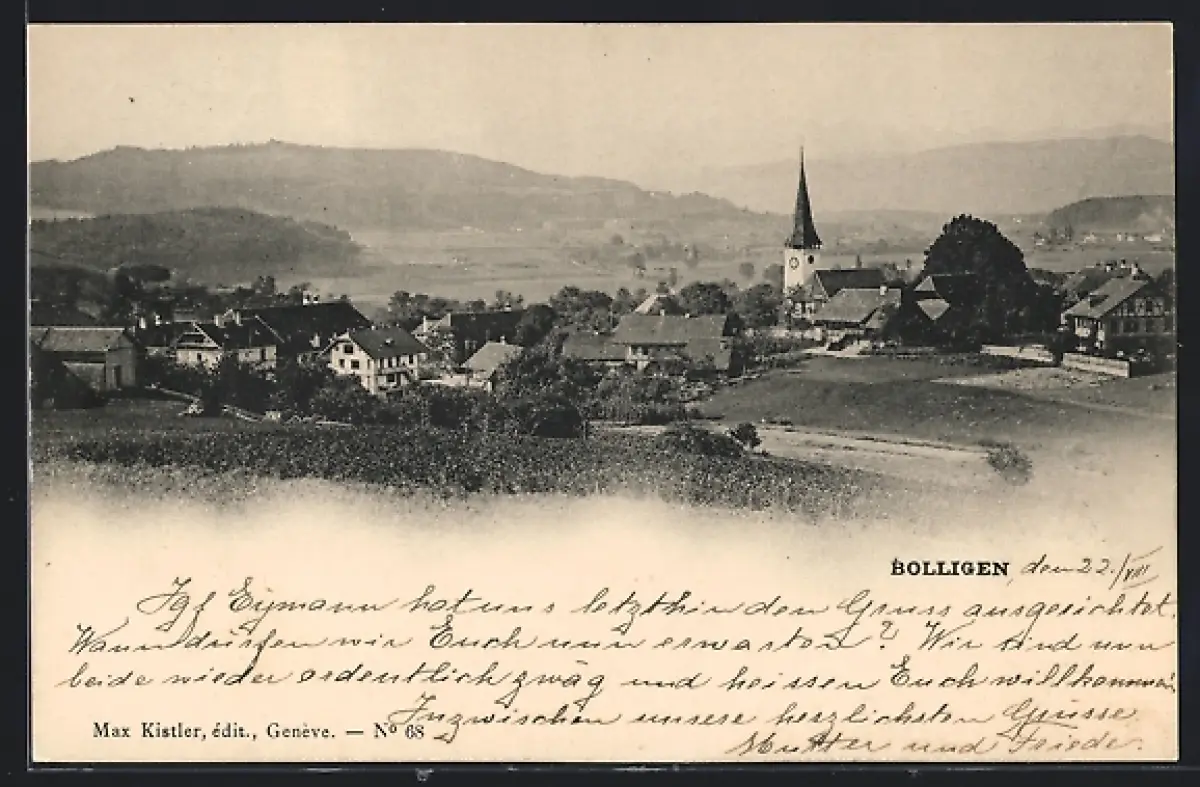 BOLLIGEN den 22./VIII
Jgf Eymann hat uns letzthin den Gruss ausgerichtet.
Wann dürfen wir Euch nun erwarten? Wir sind nun
beide wieder ordentlich zwäg und heissen Euch willkommen
Inzwischen unsere herzlichsten Grüsse
Mutter und Friede.
Max Kistler, édit., Genève. — Nº 68